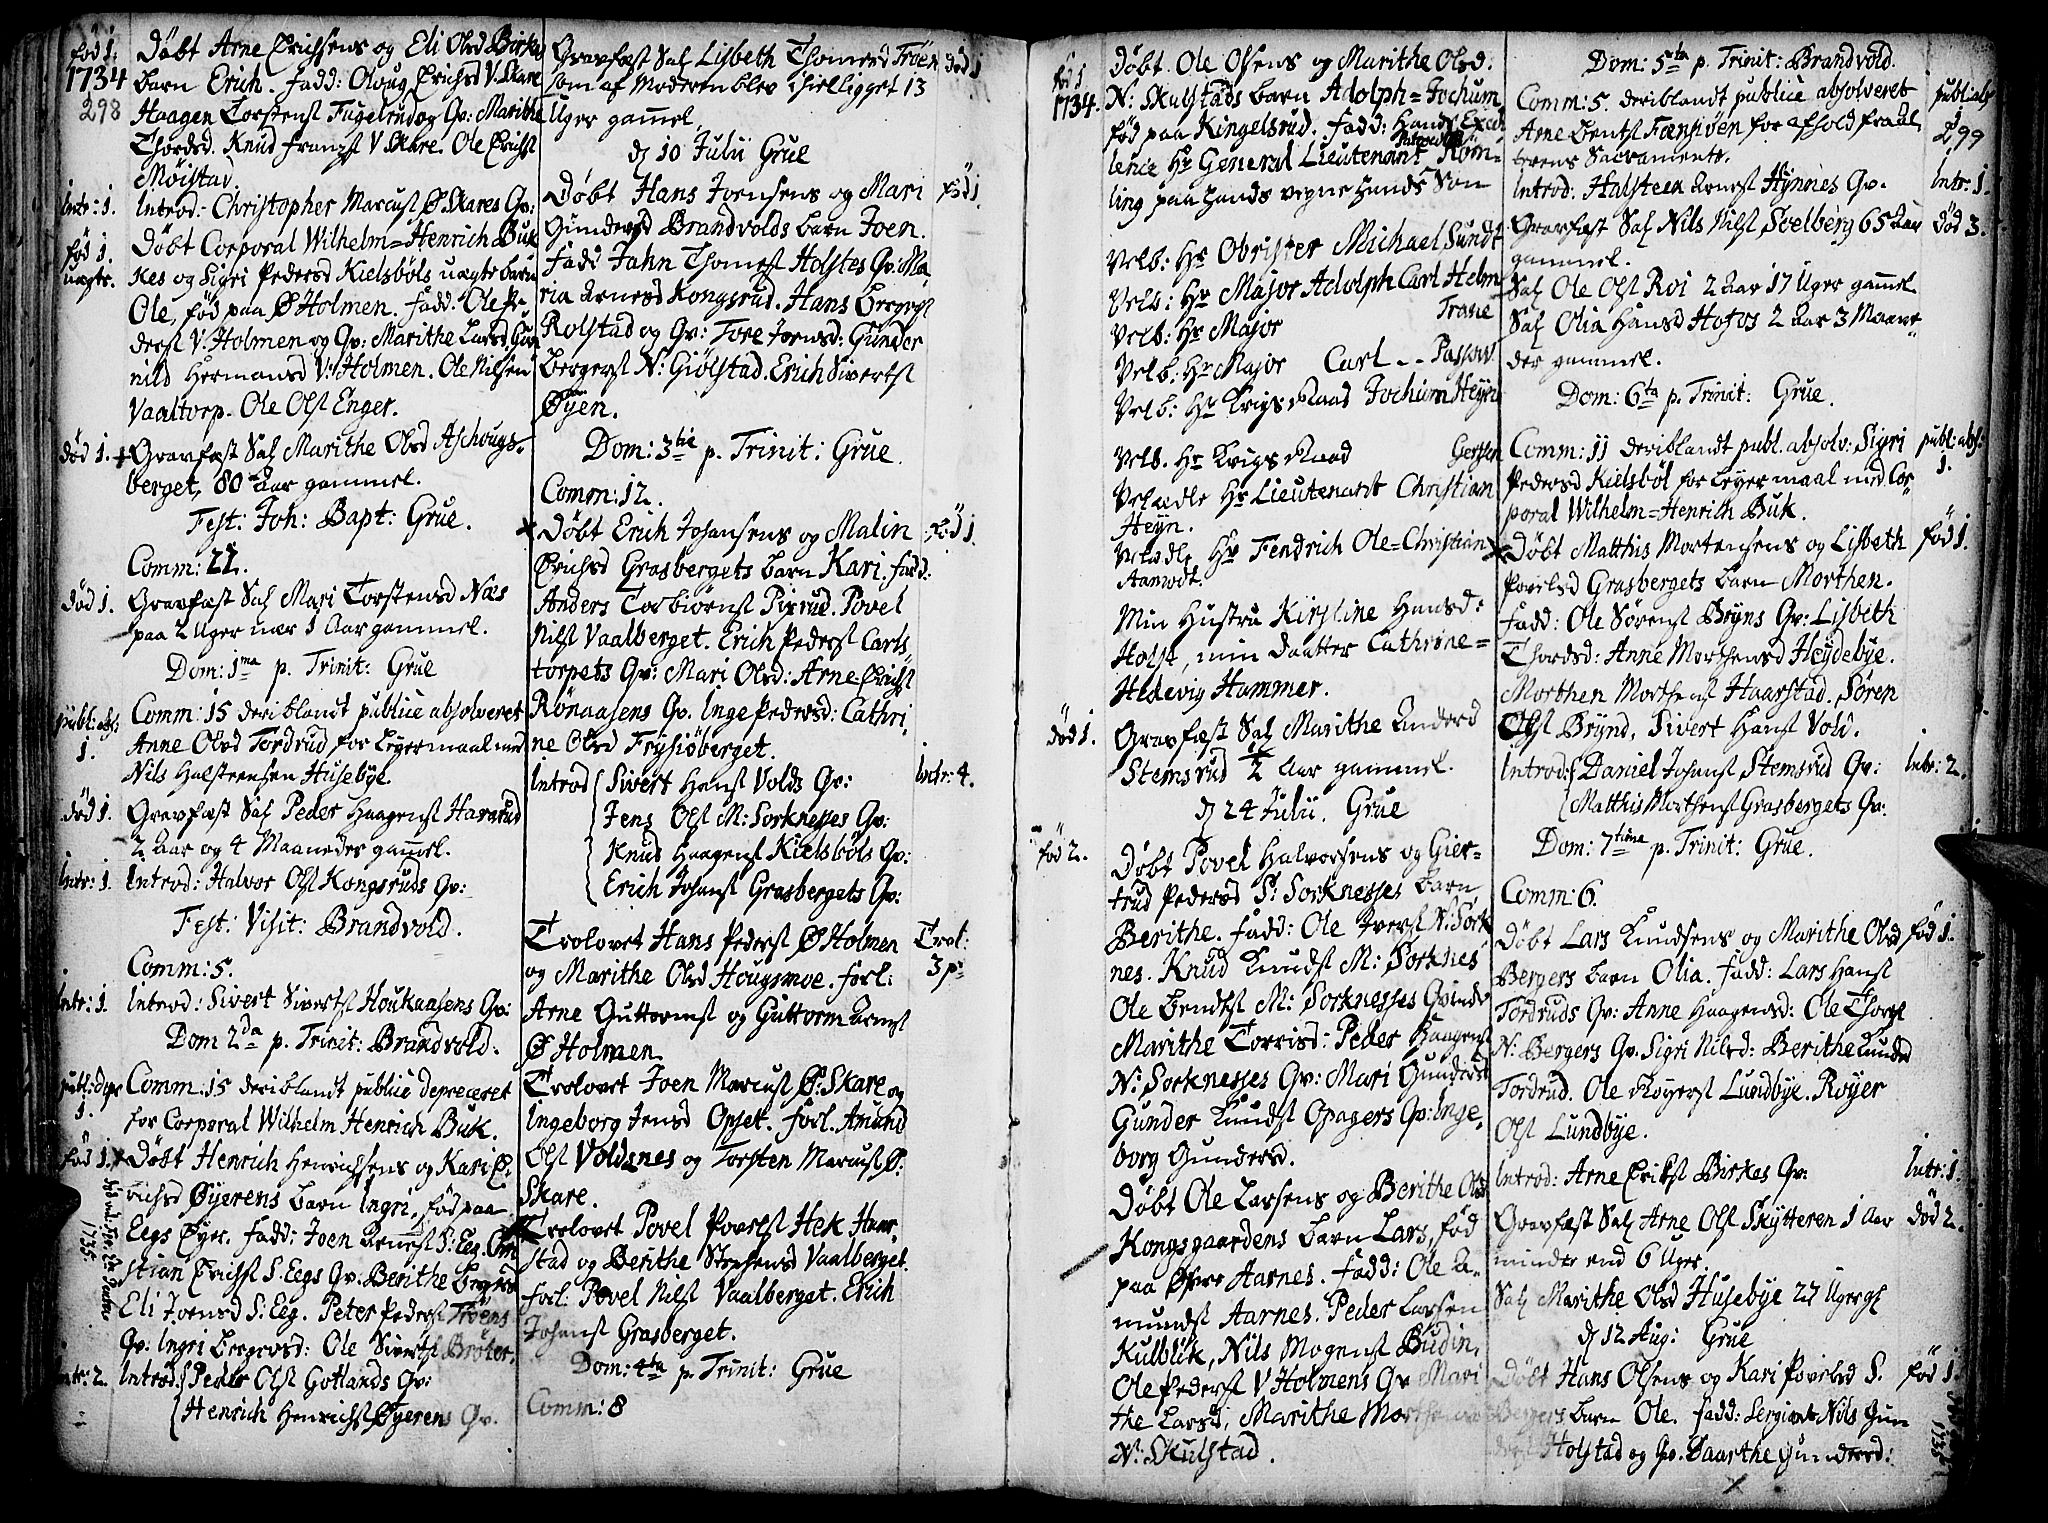 fød 1.
1734
298
Døbt Arne Erichsens og Eli Olsd Birke
barn Erich. fadd: Oloug Erichsd V. Skare
Haagen Torstens Fugelrud og Qv: Marithe
Thordsd. Knud franss V. Skare. Ole Erichs
Møistad.
Intr: 1. Introd: Christopher Marcus Ø Skares Qv:
fød 1. Døbt Corporal Wilhelm=Henrich Buk
uægte. kes og Sigri Pedersd Kielsbøls uægte barn
Ole, fød paa Ø Holmen. fadd: Ole Pe-
ders V. Holmen og Qv: Marithe Larsd. Gun
nild Hermansd V: Holmen. Ole Nilsen
Vaaltorp. Ole Ols Enger.
død 1. + Gravfæst Sal Marithe Olsd Aschougs-
berget, 80 Aar gammel.
Fest: Joh: Bapt: Grue.
Comm: 22.
død 1. Gravfæst Sal Mari Torstensd Næs
paa 2 Uger nær 1 Aar gammel.
Dom: 1ma p. Trinit: Grue
publ: abs: 1. Comm: 15 deriblandt publice absolveret
Anne Olsd Tordrud for Leyermaal med
Nils Halsteensen Husebye.
død 1. Gravfæst Sal Peder Haagens Harerud
2 Aar og 4 Maaneder gamel.
Intr: 1. Introd: Halvor Ols Kongsruds Qv:
Fest: Visit: Brandvold.
Comm: 5.
Intr: 1. Introd: Sivert Siverts Houkaasens Qv:
Dom 2da p. Trinit: Brandvold.
publ: depr 1. Comm: 15 deriblandt publice depreceret
for Corporal Wilhelm Henrich Buk.
fød 1. Døbt Henrich Henrichsens og Kari E-
richsd Øyerens barn Ingri, fød paa
Eegs Øyer. fadd: Joen Arnes S: Eeg.
stian Erichs S. Eegs Qv. Berithe
Eli Joensd S: Eeg. Peter Peders Troens
Qv: Ingri Bergersd: Ole Siverts Brøter.
Intr: 2. Introd: Peder Ols Gotlands Qv:
Henrich Henrichs Øyerens Qv.
1735
Gravfæst Sal Lisbeth Thomesd Troen død 1
som af Moderen blev ihielligget 13
Uger gamel.
d 10 Julii Grue
Døbt Hans Joensens og Mari fød 1.
Gundersd Brandvolds barn Joen.
fadd Jahn Thomes Holstes Qv: Ma
ria Arnesd Kongsrud. Hans Bergers
Rolstad og Qv: Tore Joensd: Gunder
Bergers N: Giølstad. Erich Siverts
Øyen.
Dom: 3tie p. Trinit: Grue.
Comm: 12.
Døbt Erich Johansens og Malin fød 1.
Erichsd Grasbergets barn Kari. fadd:
Anders Torbiørns Pixrud. Povel
Nils Vaalberget. Erich Peders Carls
torpets Qv: Mari Olsd: Arne Erichs
Rønaasens Qv. Inge Pedersd: Cathri-
ne Olsd Frysiøberget.
Introd Sivert Hans Volds Qv: Intr: 4.
Jens Ols M: Sorknesses Qv:
Knud Haagens Kielsbøls Qv:
Erich Johans Grasbergets Qv:
Trolovet Hans Peders Ø Holmen Trol:
og Marithe Olsd Hougsmoe. forl: 3 p:
Arne Guttorms og Guttorm Arnes
Ø Holmen.
Trolovet Joen Marcus Ø: Skare og
Ingeborg Jensd Opset. forl. Amund
Ols Voldsnes og Torsten Marcus Ø:
Skare.
Trolovet Povel Povels Hek Haar-
stad og Berithe Stephensd Vaalberget.
forl: Povel Nils Vaalberget. Erich
Johans Grasberget.
Dom: 4ta p. Trinit: Grue
Comm: 8
fød 1
1734.
Døbt Ole Olsens og Marithe Olsd.
N: Skulstads barn Adolph=Jochum
fød paa Kingelsrud. fadd: Hands Excel
lence Hr General Lieutenant Røm-
ling paa hands vegne hands Søn
Velb: Hr Obrister Michael Sundt
Velb: Hr Major Adolph Carl Helm
Velb: Hr Major Trane
Velb: Hr Major Carl -- Passow.
Velb: Hr Krigs Raad Jochum Heyn
Velb. Hr Krigs Raad Gersen
Velædle Hr Lieutenant Christian
Heyn.
Velædle Hr Fendrich Ole=Christian
Aamodt.
Min Hustru Kirstine Hansd:
Holst, min Daatter Cathrine=
Hedevig Hammer.
død 1. Gravfæst Sal Marithe Andersd
Stemsrud 1/2 Aar gammel.
d 24 Julii. Grue
fød 2. Døbt Povel Halvorsens og Gier=
trud Pedersd S: Sorknesses barn
Berithe. fadd: Ole Ivers N: Sork
nes. Knud Knuds M: Sorknes
Ole Bendts M: Sorknesses Qvinde
Marithe Torrisd: Peder Haagens
N: Sorknesses Qv: Mari Gundersd
Gunder Knuds Opagers Qv: Inge-
borg Gundersd.
Døbt Ole Larsens og Berithe Olsd
Kongsgaardens barn Lars, fød
paa Øfre Aarnes. fadd: Ole A-
munds Aarnes. Peder Larsen
Kulblik, Nils Mogens Budin,
Ole Peders V Holmens Qv Mari
the Larsd, Marithe
N: Skulstad.
Dom: 5ta p. Trinit: Brandvold.
Comm: 5. deriblandt publice absolveret publ: abs 1
Arne Bents Fænsiøen for afhold fra Al 299
terens Sacramente.
Introd: Halsteen Arnes Hynnes Qv. Intr: 1.
Gravfæst Sal Nils Nils Svelberg 65 Aar død 3.
gammel.
Sal Ole Ols Roi 2 Aar 17 Uger gamel
Sal Olia Hansd Hofos 2 Aar 3 Maane-
der gammel.
Dom: 6ta p. Trinit: Grue.
Comm: 11 deriblandt publ. absolv: Sigri publ: abs: 1.
Pedersd Kielsbøl for Leyermaal med Cor-
poral Wilhelm=Henrich Buk.
Døbt Matthis Mortensens og Lisbeth fød 1.
Povelsd Grasbergets barn Morthen.
fadd: Ole Sørens Bryns Qv: Lisbeth
Thordsd: Anne Morthensd Heydebye.
Morthen Morthens Haarstad. Søren
Ols Brynd, Sivert Hans Vold.
Introd: Daniel Johans Stemsrud Qv: Intr: 2.
Matthis Morthens Grasbergets Qv:
Dom: 7time p. Trinit: Grue.
Comm: 6.
Døbt Lars Knudsens og Marithe Olsd fød 1.
Bergers barn Olia. fadd: Lars Hans
Tordruds Qv: Anne Haagensd: Ole Thors
N: Bergers Qv. Sigri Nilsd: Berithe
Tordrud. Ole Røyers Lundbye. Røyer
Ols Lundbye.
Introd: Arne Eriks Birkes Qv: Intr: 1.
Gravfæst Sal Arne Ols Skytteren 1 Aar død 2.
minder end 6 Uger.
Sal Marithe Olsd Husebye 27 Uger gl
d 12 Aug: Grue
Døbt Hans Olsens og Kari Povelsd S. fød 1.
Bergers barn Ole. fadd: Sergiant Nils Gun
ders Holstad og Qv. Baarthe Gundersd: